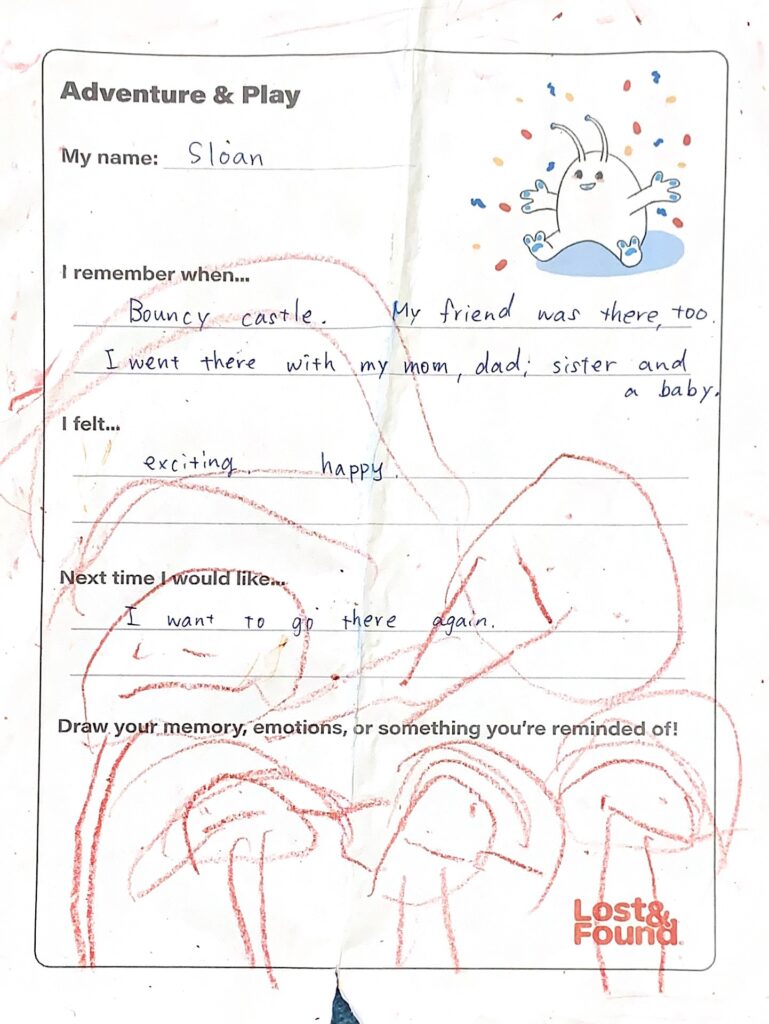 Adventure & Play
My name: Sloan
I remember when...
Bouncy castle. My friend was there, too.
I went there with my mom, dad, sister and
a baby.
I felt...
exciting. happy.
Next time I would like...
I want to go there again.
Draw your memory, emotions, or something you're reminded of!
Lost&
Found